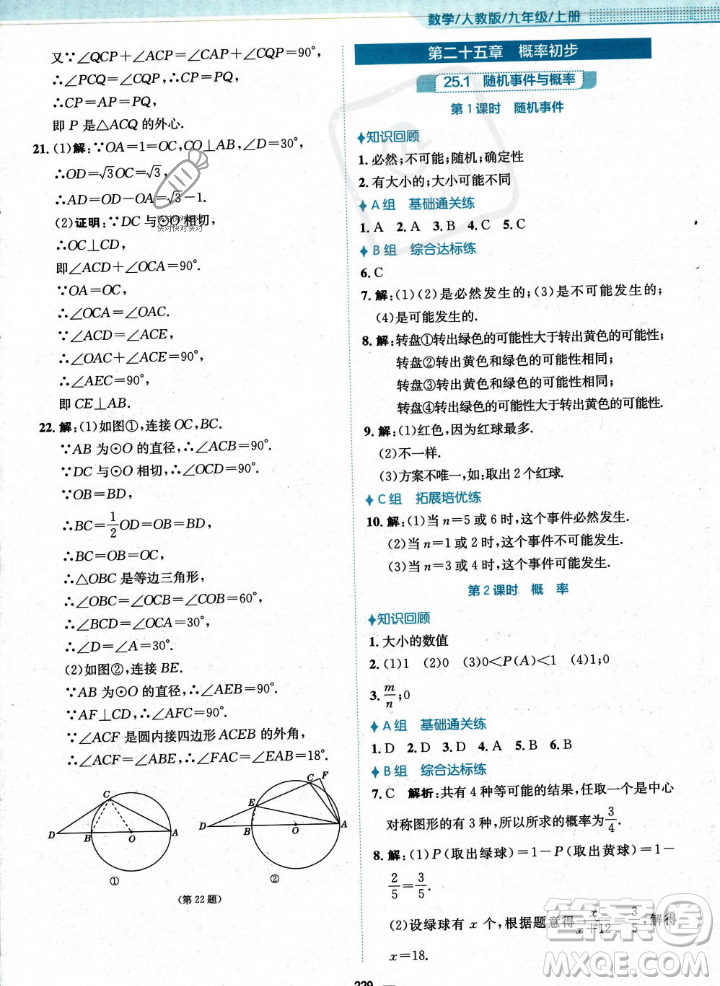 数学/人教版/九年级/上册
又∵∠QCP+∠ACP=∠ACQ=90°,
∴∠PCQ=∠PQC=90°-∠ACP,
∴CP=PQ,∴AP=PQ=CP,
即 P 是△ACQ 的外心.
21. (1)解:∵OA=1=OC,CO⊥AB,
∴OD=√3OC=√3,
∴AD=OD-OA=√3-1.
(2)证明:∵DC 与⊙O 相切,
∴OC⊥CD,
即∠ACD+∠OCA=90°.
∵OA=OC,
∴∠OCA=∠OAC.
∵∠ACD=∠ACE,
∴∠OAC+∠ACE=90°,
∴∠AEC=90°.
即 CE⊥AB.
22. 解:(1)如图①,连接 OC,BC.
∵AB 为⊙O 的直径,∴∠ACB=90°.
∵DC 与⊙O 相切,∴∠OCD=90°.
∵OB=BD,
∴BC=1/2 OD=OB=BD,
∴BC=OB=OC,
∴△OBC 是等边三角形,
∴∠OBC=∠BOC=∠OCB=60°,
∴∠BCD=∠OAC=30°,
∴∠D=∠A=30°.
(2)如图②,连接 BE.
∵AB 为⊙O 的直径,∴∠AEB=90°.
∵AF⊥CD,∴∠AFC=90°.
∵∠ACF 是圆内接四边形 ACEB 的外角,
∴∠ACF=∠ABE,∴∠FAC=∠EAB=18°.
C
D B O A
①
C F
E
D B O A
②
(第 22 题)
第二十五章 概率初步
25.1 随机事件与概率
第 1 课时 随机事件
知识回顾
1. 必然;不可能;随机;确定性
2. 有大小的;大小有可能不同
A 组 基础通关练
1. A 2. A 3. B 4. C 5. A
B 组 综合达标练
6. C
7. 解:(1)(2)是必然发生的;(3)不可能发生的;
(4)是可能发生的.
8. 解:转盘①转出绿色的可能性大于转出黄色的可能性;
转盘②转出黄色和绿色的可能性相同;
转盘③转出黄色和绿色的可能性相同;
转盘④转出绿色的可能性大于转出黄色的可能性.
9. 解:(1)红色,因为红球最多.
(2)不一样.
(3)方案不唯一,如:取出 2 个红球.
C 组 拓展培优练
10. 解:(1)当 n=5 或 6 时,这个事件必然发生.
(2)当 n=1 或 2 时,这个事件不可能发生.
(3)当 n=3 或 4 时,这个事件可能发生.
第 2 课时 概 率
知识回顾
1. 大小的数值
2. (1)1 (2)0 (3)0<P(A)<1 (4)1;0
3. m/n;0
A 组 基础通关练
1. D 2. D 3. A 4. B 5. D 6. D
B 组 综合达标练
7. C 解析:共有 4 种等可能的结果,任取一个是中心
对称图形的有 3 种,所以所求的概率为 3/4.
8. 解:(1)P(取出绿球)=1-P(取出黄球)=1-
2/5=3/5.
(2)设绿球有 x 个,根据题意得 x/(x+12)=3/5,解得
x=18.
229
MXQE.COM